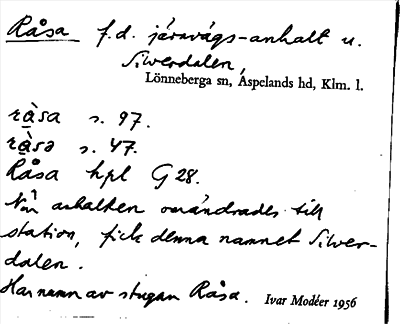 Råsa f.d. järnvägs-anhalt u.
Silverdalen,
Lönneberga sn, Aspelands hd, Klm. l.
ràsa s. 97.
ràsa s. 47.
Råsa hpl G 28.
När anhalten omändrades till
station, fick denna namnet Silver-
dalen.
Har namn av stugan Råsa. Ivar Modéer 1956